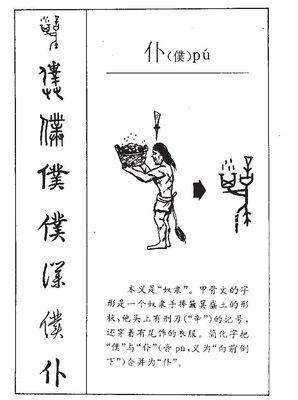 仆(僕)pú
僕
僕
僕
僕
僕
仆
本义是“奴隶”。甲骨文的字
形是一个奴隶手捧簸箕盛土的形
状,他头上有刑刀(“辛”)的记号,
还穿着有尾饰的衣服。简化字把
“僕”与“仆”(音pū,义为“向前倒
下”)合并为“仆”。